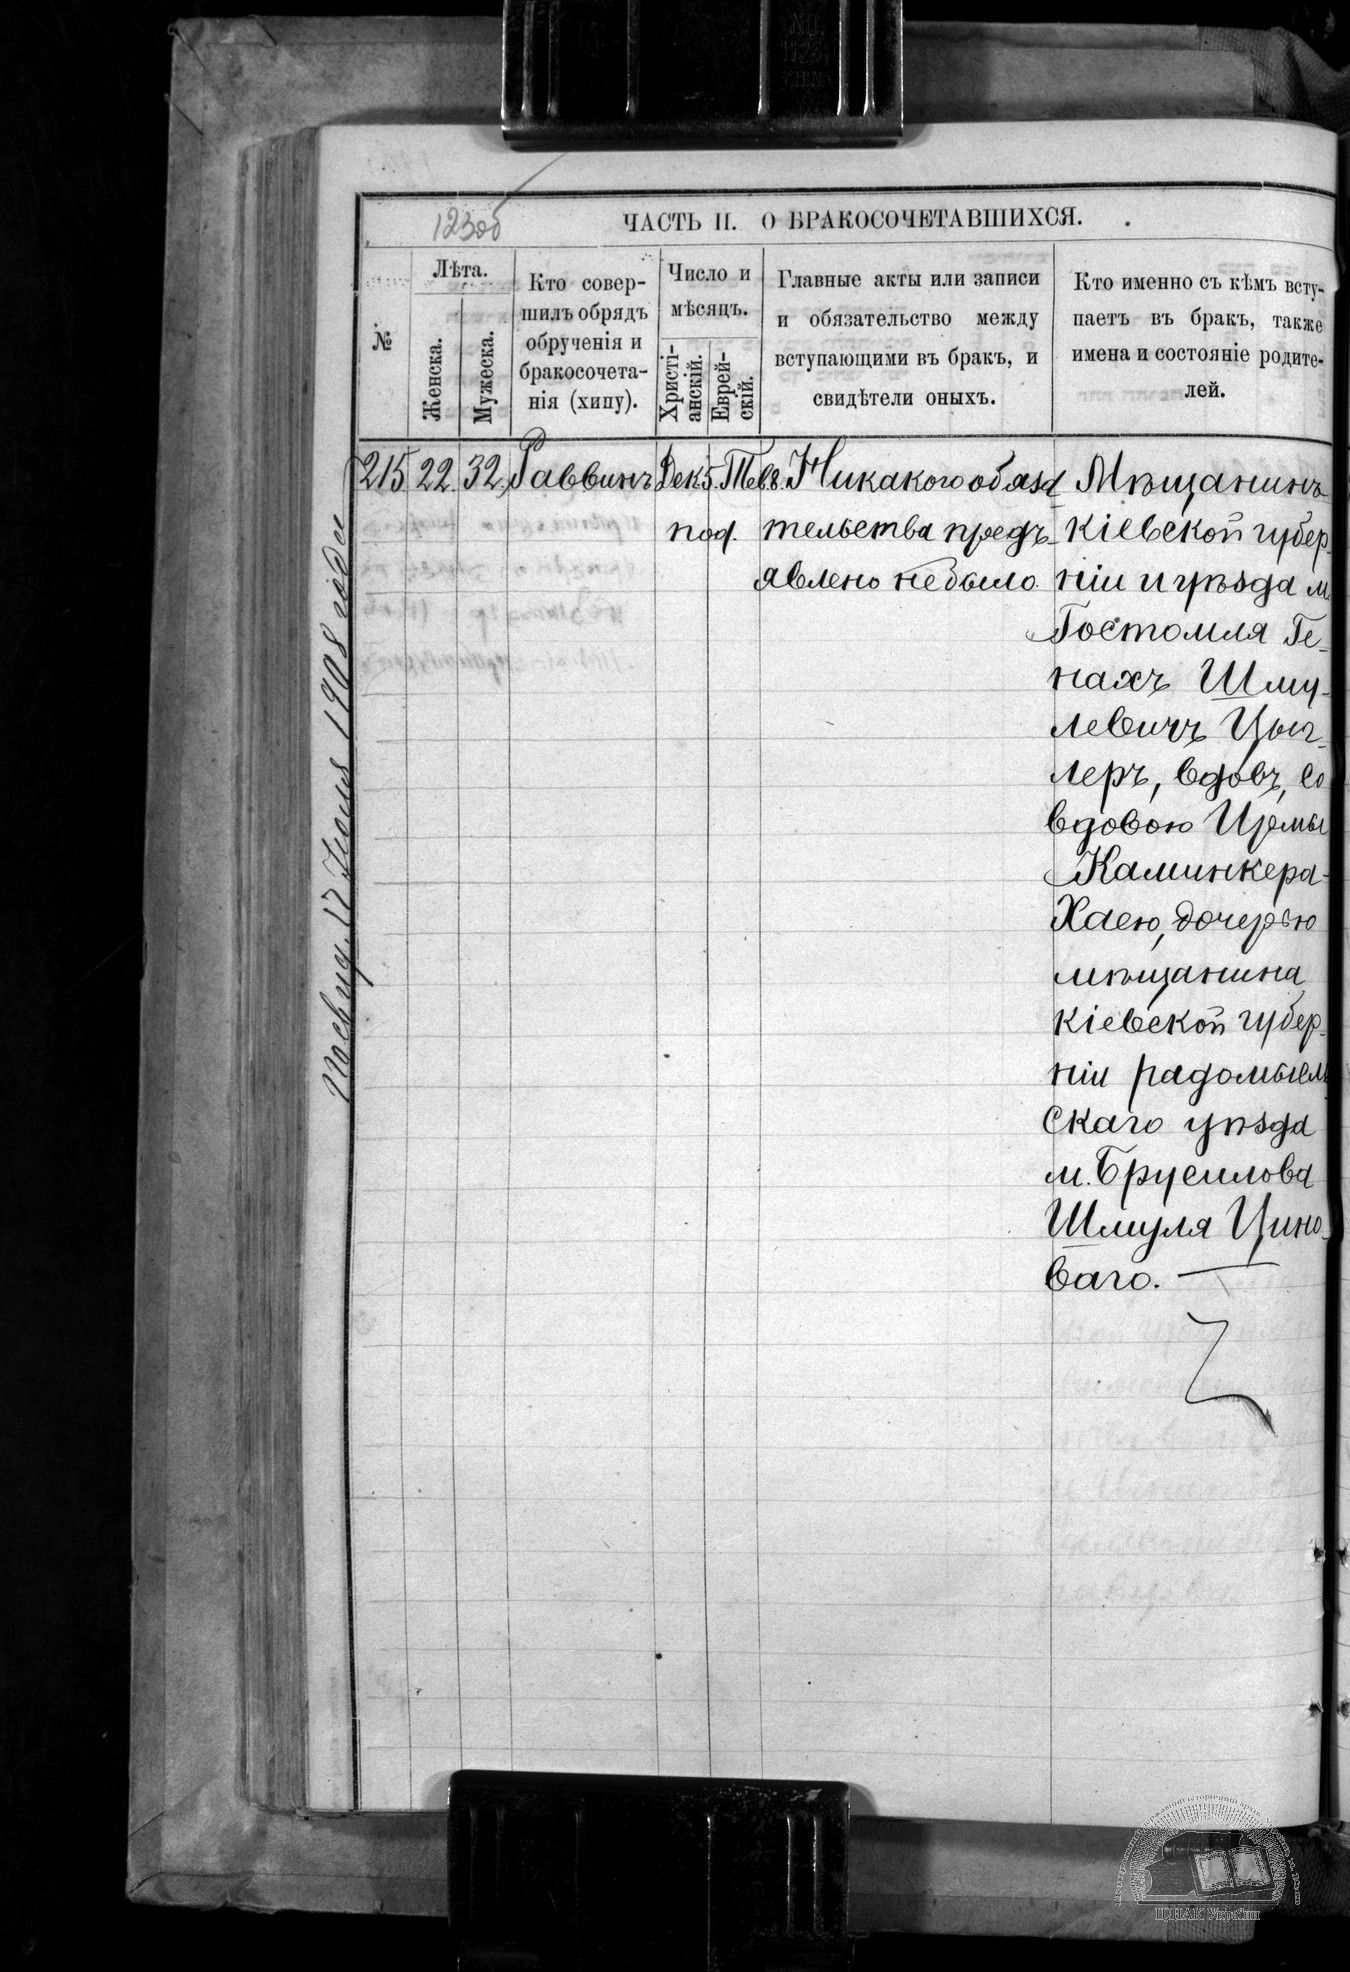 123об
ЧАСТЬ II. О БРАКОСОЧЕТАВШИХСЯ.
№
Лѣта.
Женска.
Мужеска.
Кто совер-
шилъ обрядъ
обрученія и
бракосочета-
нія (хипу).
Число и
мѣсяцъ.
Христі-
анскій.
Еврей-
скій.
Главные акты или записи
и обязательство между
вступающими въ бракъ, и
свидѣтели оныхъ.
Кто именно съ кѣмъ всту-
паетъ въ бракъ, также
имена и состояніе родите-
лей.
215. 22. 32. Раввинъ Дек. 5. Тев. 8. Никакого обяза-
тельства предъ-
явлено не было
Мѣщанинъ
Кіевской губер-
ніи и уѣзда м.
Гостомля Ге-
нахъ Шму-
левичъ Цыг-
леръ, вдовъ, со
вдовою
Каминкера-
Хаею, дочерью
мѣщанина
Кіевской губер-
ніи радомысль
скаго уѣзда
м. Брусилова
Шмуля Цино-
ваго.
17 Іюля 1908 года
ЦДІАК України